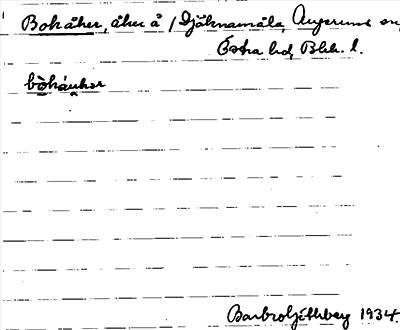 Bokåker, åker å / Djäknamåla, Augerums sn,
Östra hd, Blek. l.
bòkáukər
Barbro Götlberg 1934.